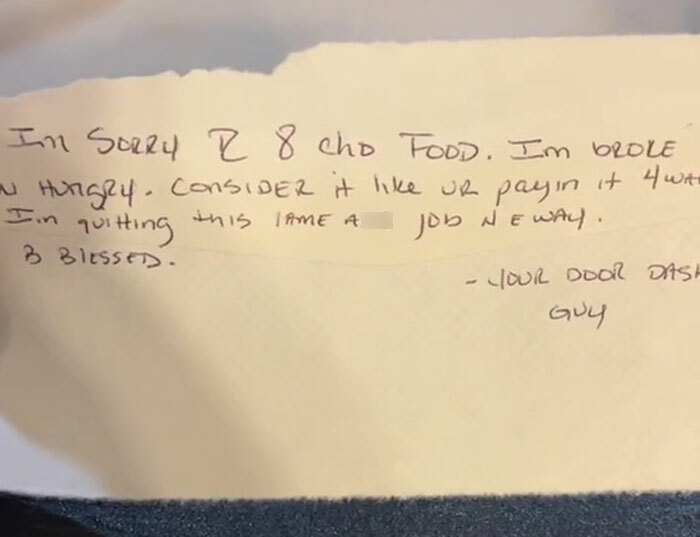 Im SORRY I 8 cho FOOD. Im bROKE
N HUNGRY. CONSIDER it like UR payin it 4WA
I.m quitting this lAME A job N E WAY.
B BlESSED.
- YOUR DOOR DASH
GUY